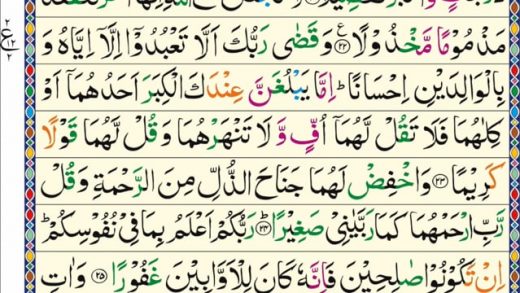 مَذْمُوْمًا مَّخْذُوْلًا ﴿٢٢﴾ ع وَقَضٰى رَبُّكَ اَلَّا تَعْبُدُوْٓا اِلَّآ اِيَّاهُ وَ
بِالْوَالِدَيْنِ اِحْسَانًا ؕ اِمَّا يَبْلُغَنَّ عِنْدَكَ الْكِبَرَ اَحَدُهُمَآ اَوْ
كِلٰهُمَا فَلَا تَقُلْ لَّهُمَآ اُفٍّ وَّ لَا تَنْهَرْهُمَا وَ قُلْ لَّهُمَا قَوْلًا
كَرِيْمًا ﴿٢٣﴾ وَاخْفِضْ لَهُمَا جَنَاحَ الذُّلِّ مِنَ الرَّحْمَةِ وَ قُلْ
رَّبِّ ارْحَمْهُمَا كَمَا رَبَّيٰنِيْ صَغِيْرًا ﴿٢٤﴾ؕ رَبُّكُمْ اَعْلَمُ بِمَا فِيْ نُفُوْسِكُمْ ؕ
اِنْ تَكُوْنُوْا صٰلِحِيْنَ فَاِنَّهٗ كَانَ لِلْاَوَّابِيْنَ غَفُوْرًا ﴿٢٥﴾ وَاٰتِ